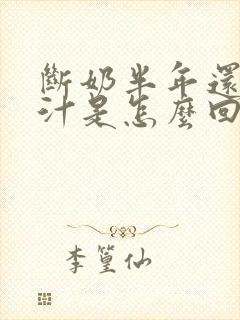 斷奶半年還
汁是怎麼回
李篁仙